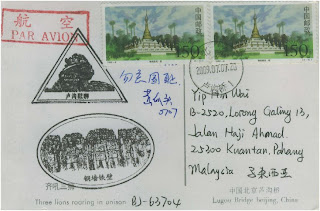 航空
PAR AVION
中国邮政
150
中国邮政
150
2009.07.07.20
卢沟醒狮
勿忘国耻
0707
Yip Min Wai
B-2520, Lorong Galing 13,
Jalan Haji Ahmad.
25300 Kuantan. Pahang
Malaysia 马来西亚
铜墙铁壁
Three lions roaring in unison
BJ-63704
中国北京卢沟桥
Lugou Bridge beijing, China